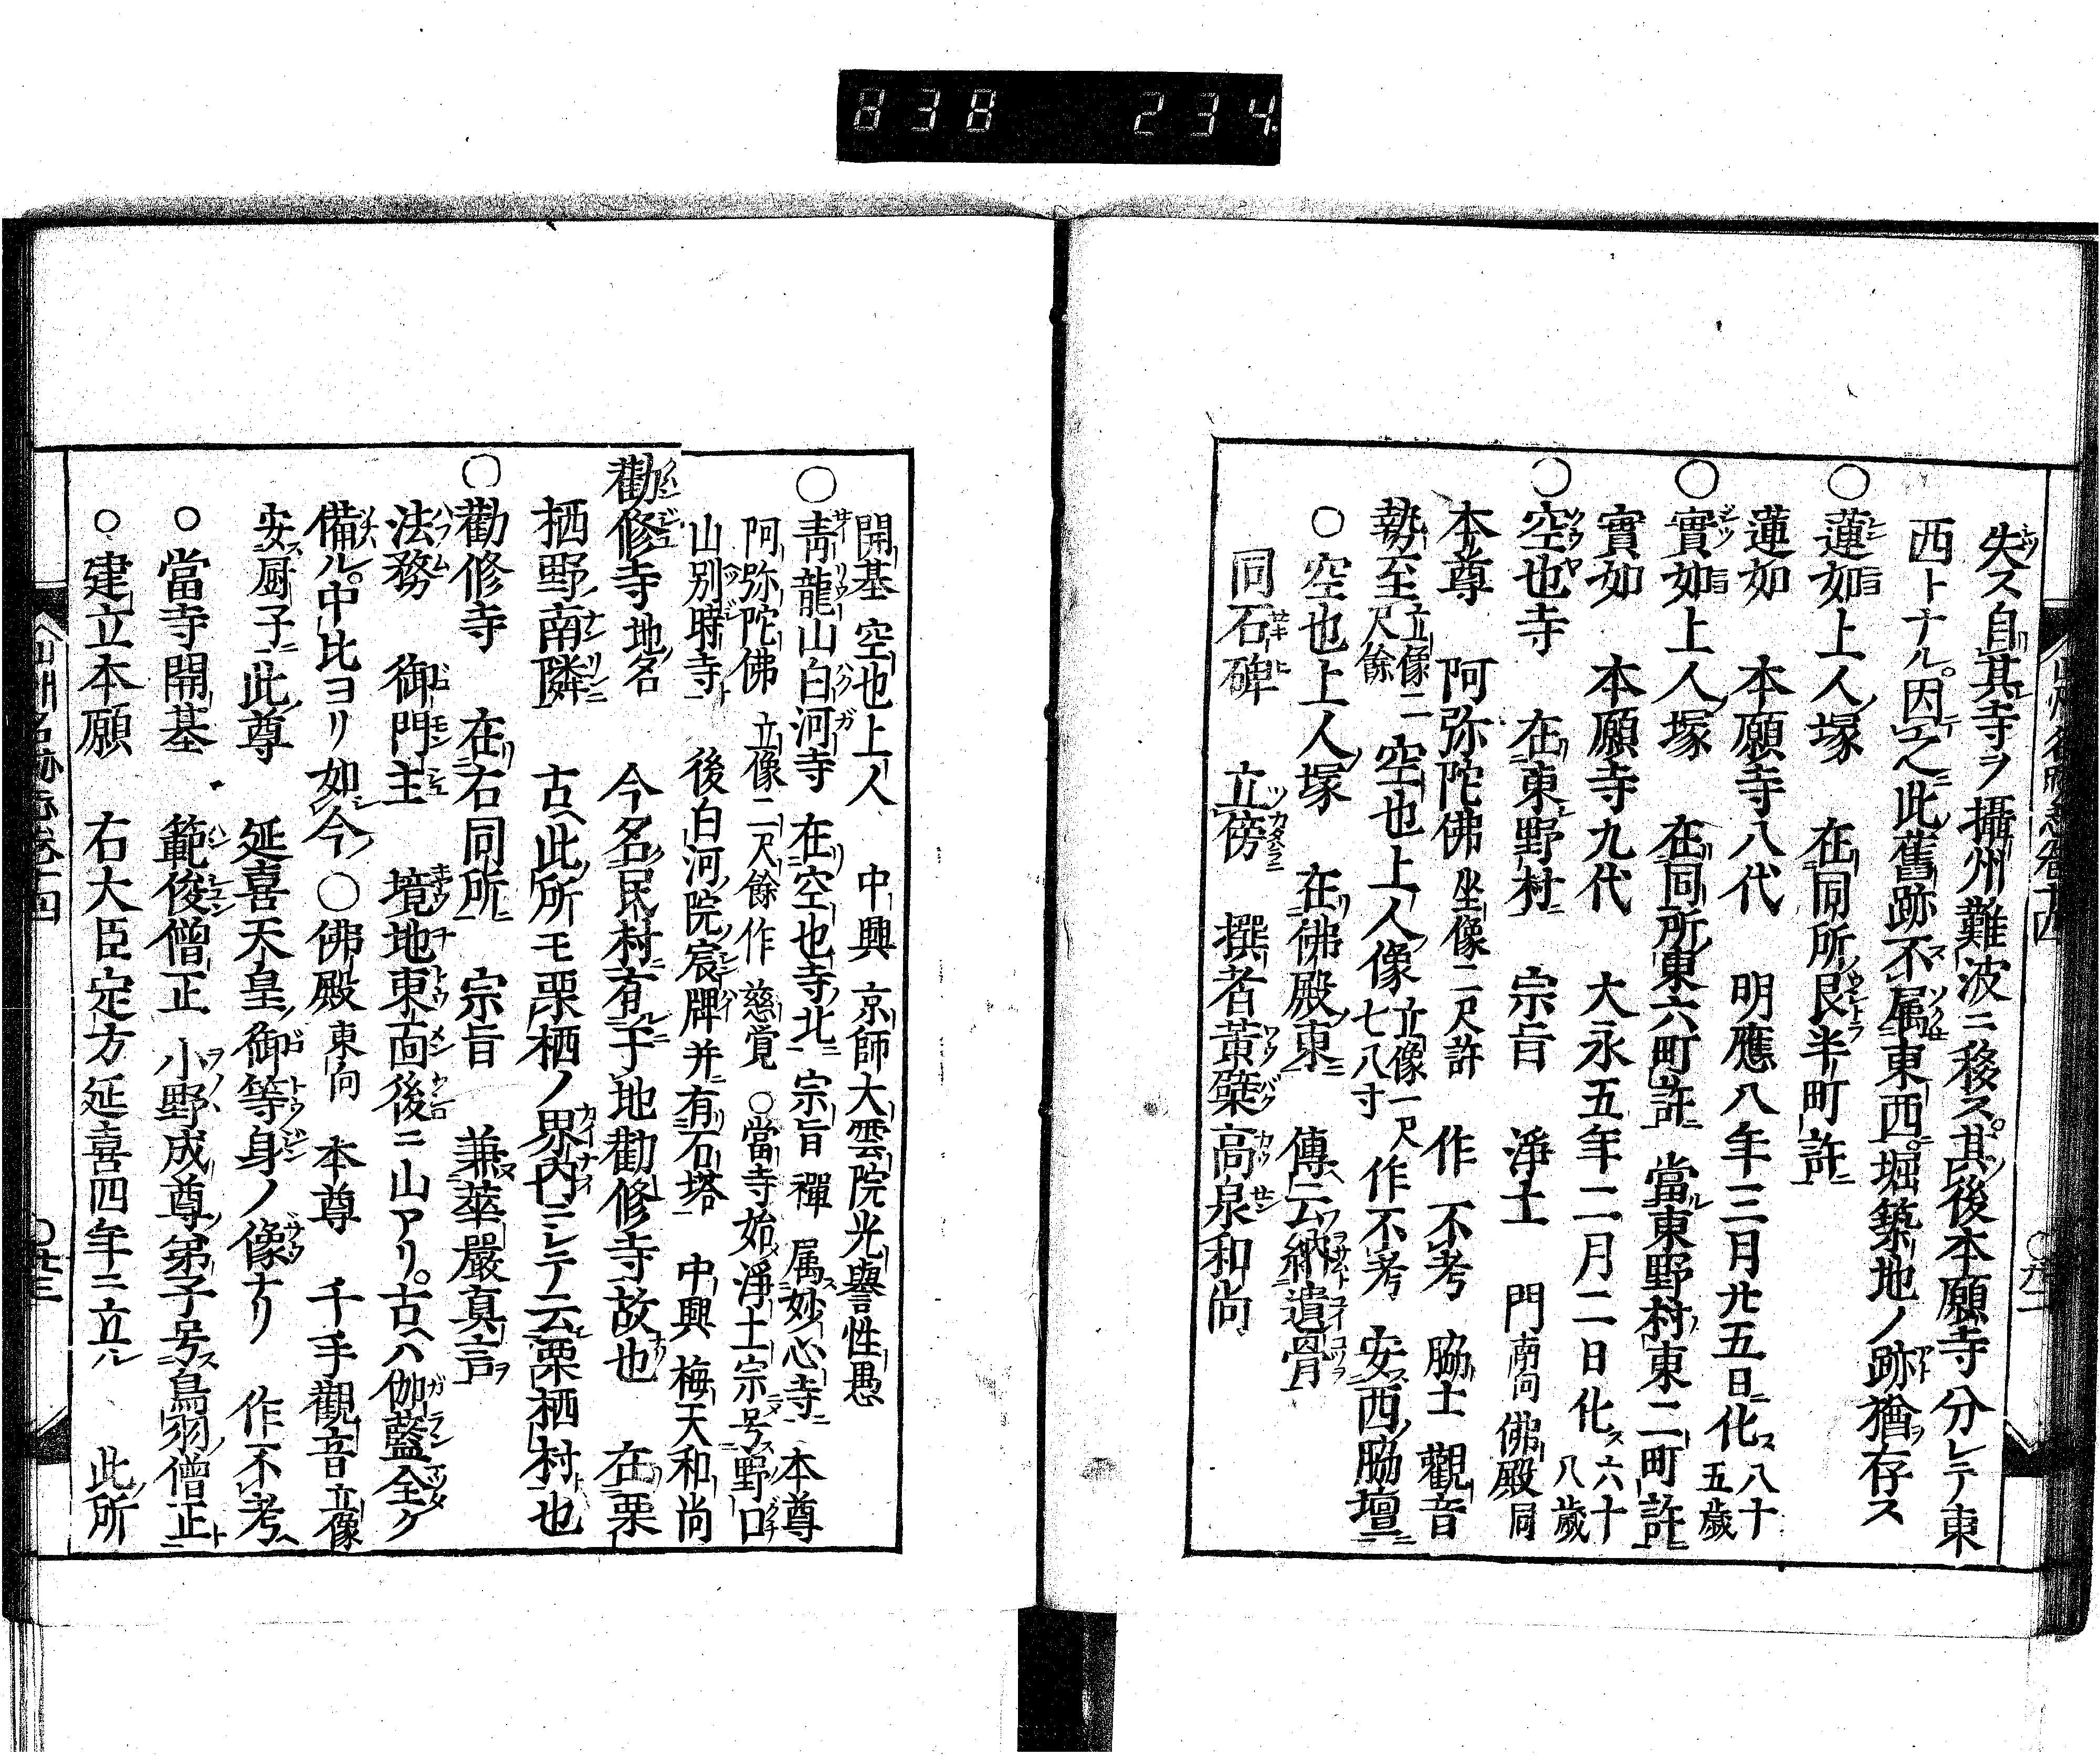 838 234
失ス自其寺ヲ攝州難波ニ移ス其後本願寺分レテ東
西トナル因之此舊跡不属東西堀築地ノ跡猶存ス
○蓮如上人塚 在同所艮半町許
蓮如 本願寺八代 明應八年三月廿五日化ス八十五歳
○實如上人塚 在同所東六町許 當東野村東二町許
實如 本願寺九代 大永五年二月二日化ス六十八歳
○空也寺 在東野村 宗旨 淨土 門南向 佛殿同
本尊 阿弥陀佛坐像二尺許 作不考 脇士觀音
勢至立像二尺餘 空也上人像立像一尺七八寸 作不考 安西脇壇
○空也上人塚 在佛殿東 傳云納遺骨
同石碑 立傍 撰者黄檗高泉和尚
開基空也上人 中興京師大雲院光譽性愚
○靑龍山白河寺 在空也寺北 宗旨禪 属妙心寺 本尊
阿弥陀佛 立像二尺餘作慈覚 ○當寺始淨土宗号野口
山別時寺 後白河院宸牌并有石塔 中興梅天和尚
勸修寺地名 今名民村有子地勸修寺故也 在栗
栖野南隣 古ヘ此所モ栗栖ノ界内ニシテ云栗栖村也
○勸修寺 在右同所 宗旨 兼華嚴真言
法務 御門主 境地東面後ニ山アリ古ハ伽藍全ク
備ル中比ヨリ如今 ○佛殿東向 本尊 千手觀音立像
安厨子此尊 延喜天皇御等身ノ像ナリ 作不考
○當寺開基 範俊僧正 小野成尊弟子号鳥羽僧正
○建立本願 右大臣定方延喜四年ニ立ル 此所